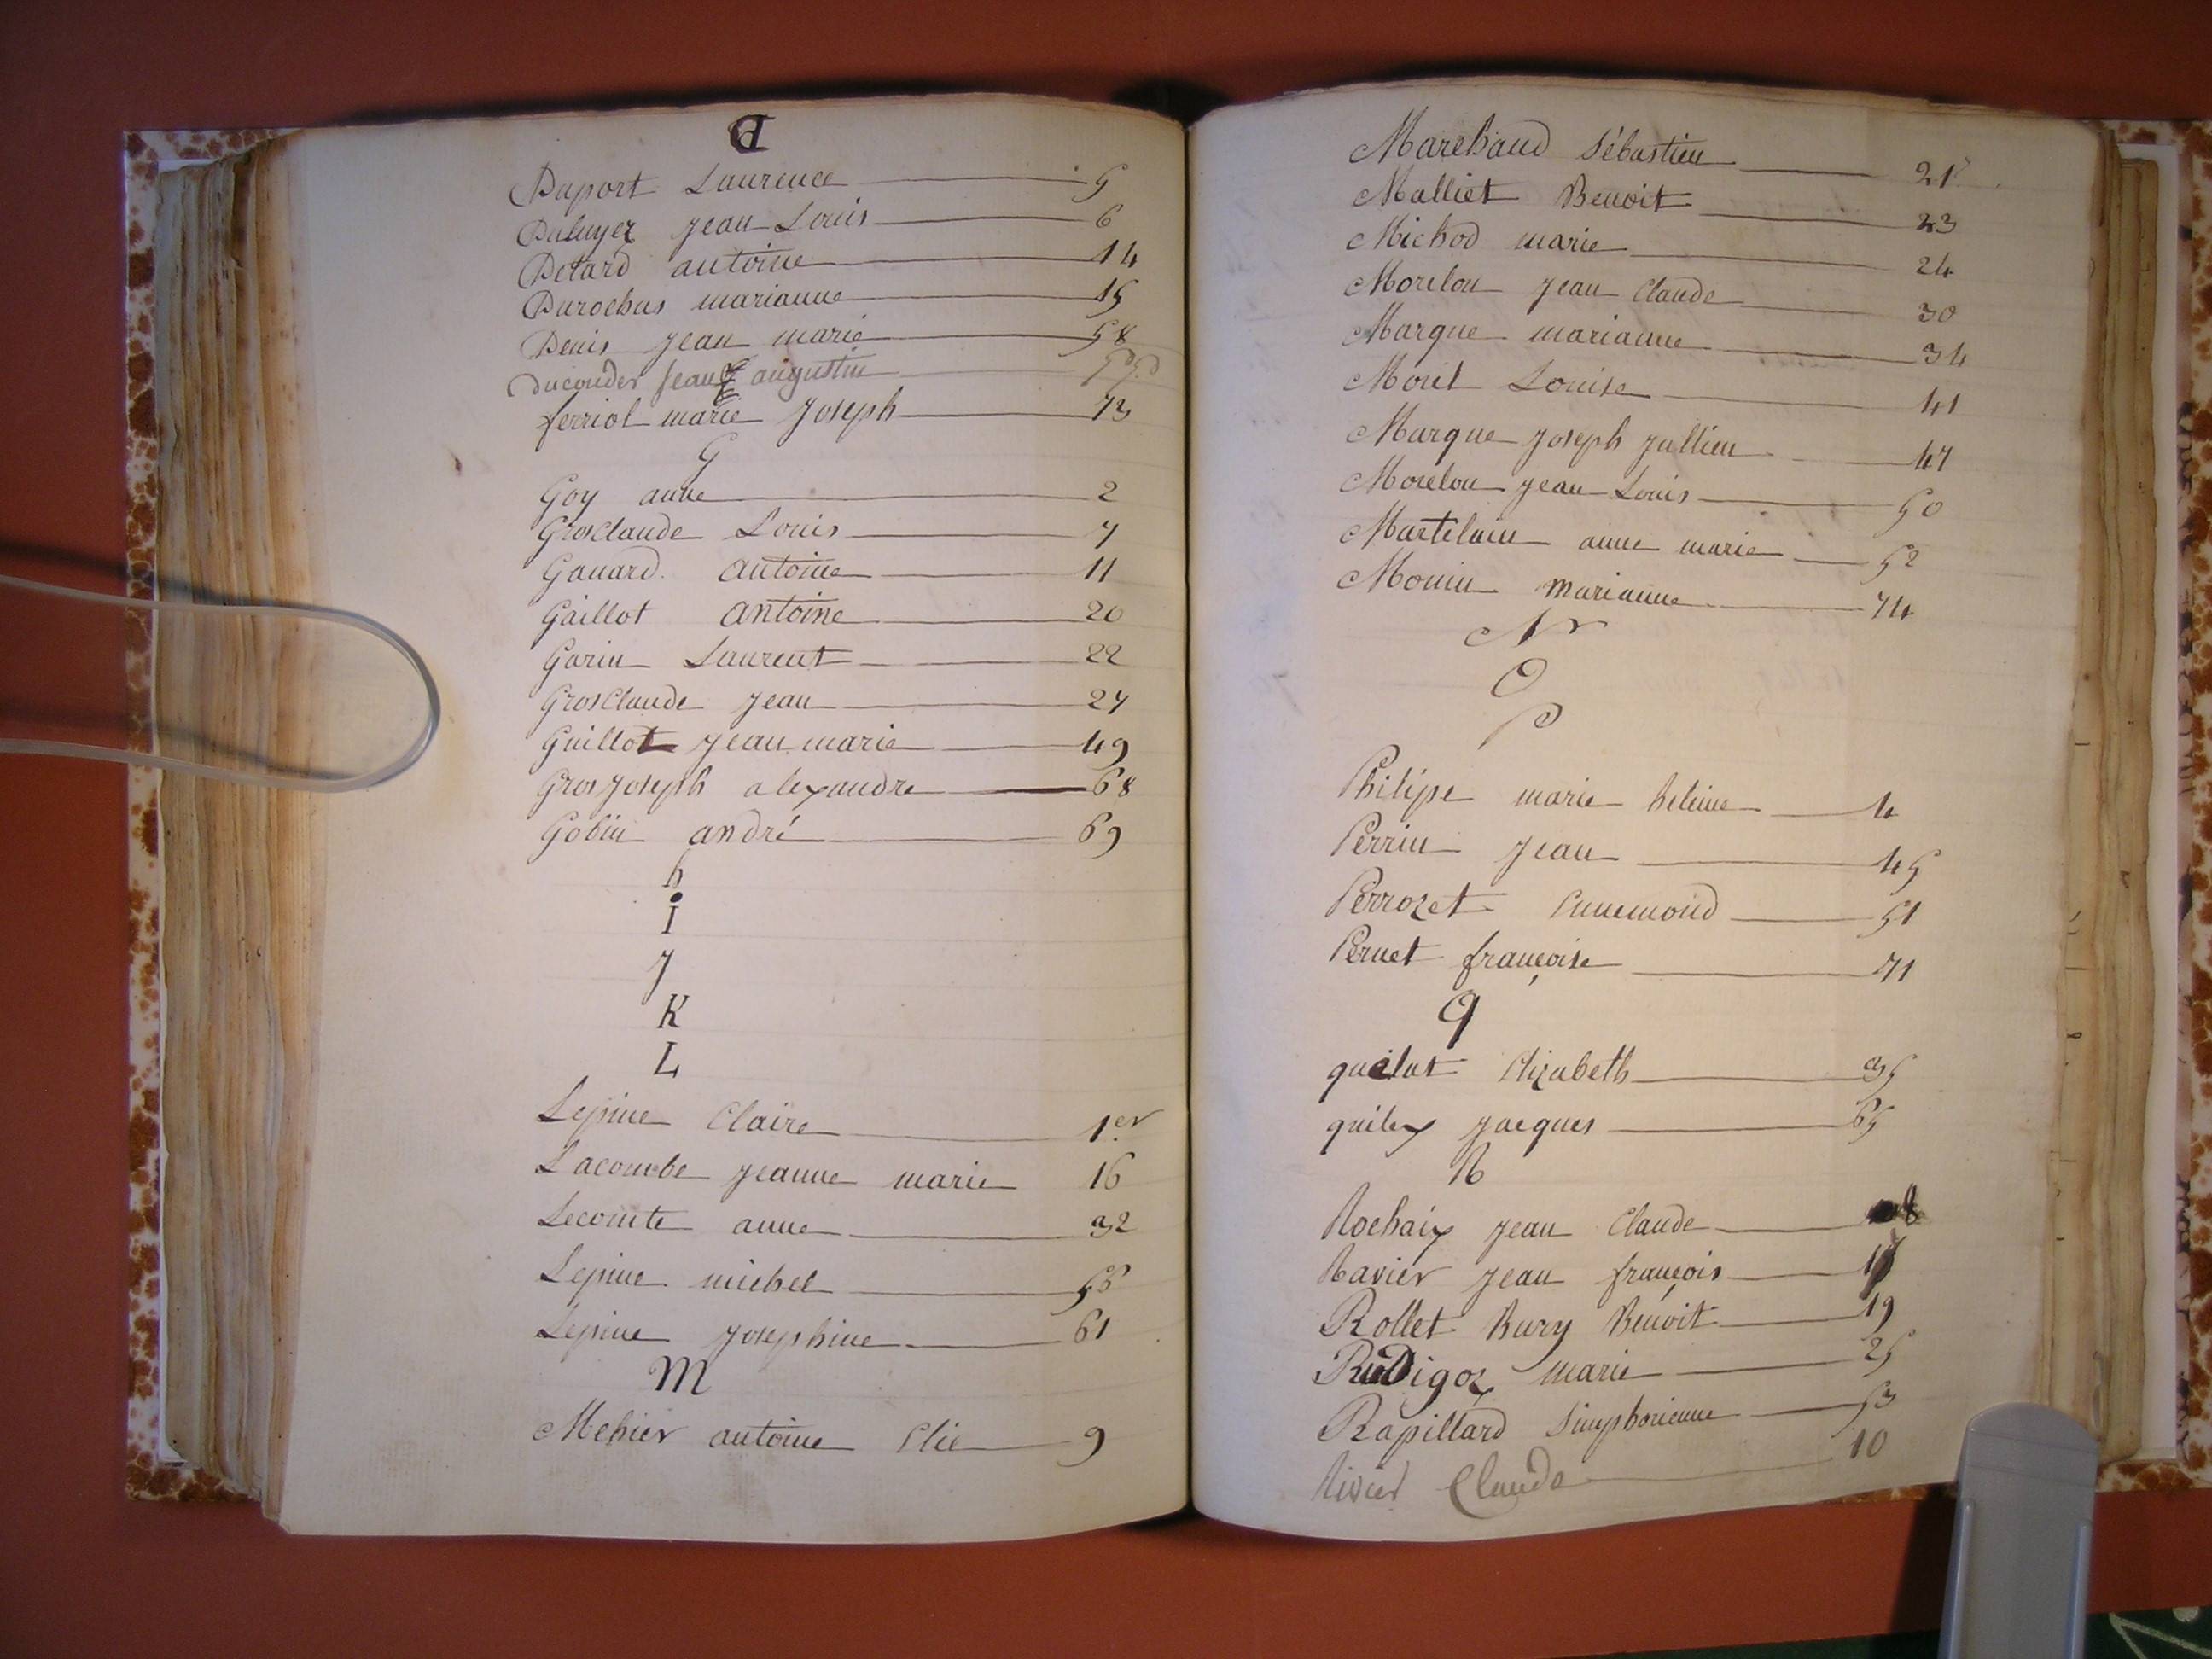 D
Duport Laurence 5
Duluyez jean Louis 6
Detard antoine 14
Durochas marianne 15
Denis jean marie 58
Ducouder jean augustin
ferriol marie joseph 73
G
Goy anne 2
Grosclaude Louis 7
Ganard antoine 11
Gaillot antoine 20
Garin Laurent 22
Grosclaude jean 27
Guillot jean marie 49
Gros joseph alexandre 68
Gobin andré 69
h
I
J
K
L
Lepine Claire 1er
Lacombe jeanne marie 16
Lecomte anne 32
Lepine michel
Lepine josephine 61
M
Mehier antoine Elie 9
Marchand Sébastien 21
Malliet Benoit 23
Michod marie 24
Morelon jean Claude 30
Marque marianne 34
Morel Louise 41
Marque joseph jullien 47
Morelon jean Louis 50
Martelain anne marie 52
Monin marianne 74
N
O
P
Philipe marie heleine 4
Perrin jean 45
Perrozet Ennemond 51
Pernet françoise 71
q
quilat Elizabeth 35
quiley jacques 65
R
Rochaix jean Claude 8
Ravier jean françois
Rollet Bury Benoit 19
Rudigoz marie 25
Rapillard Simphorienne 53
Rivier Claude 10